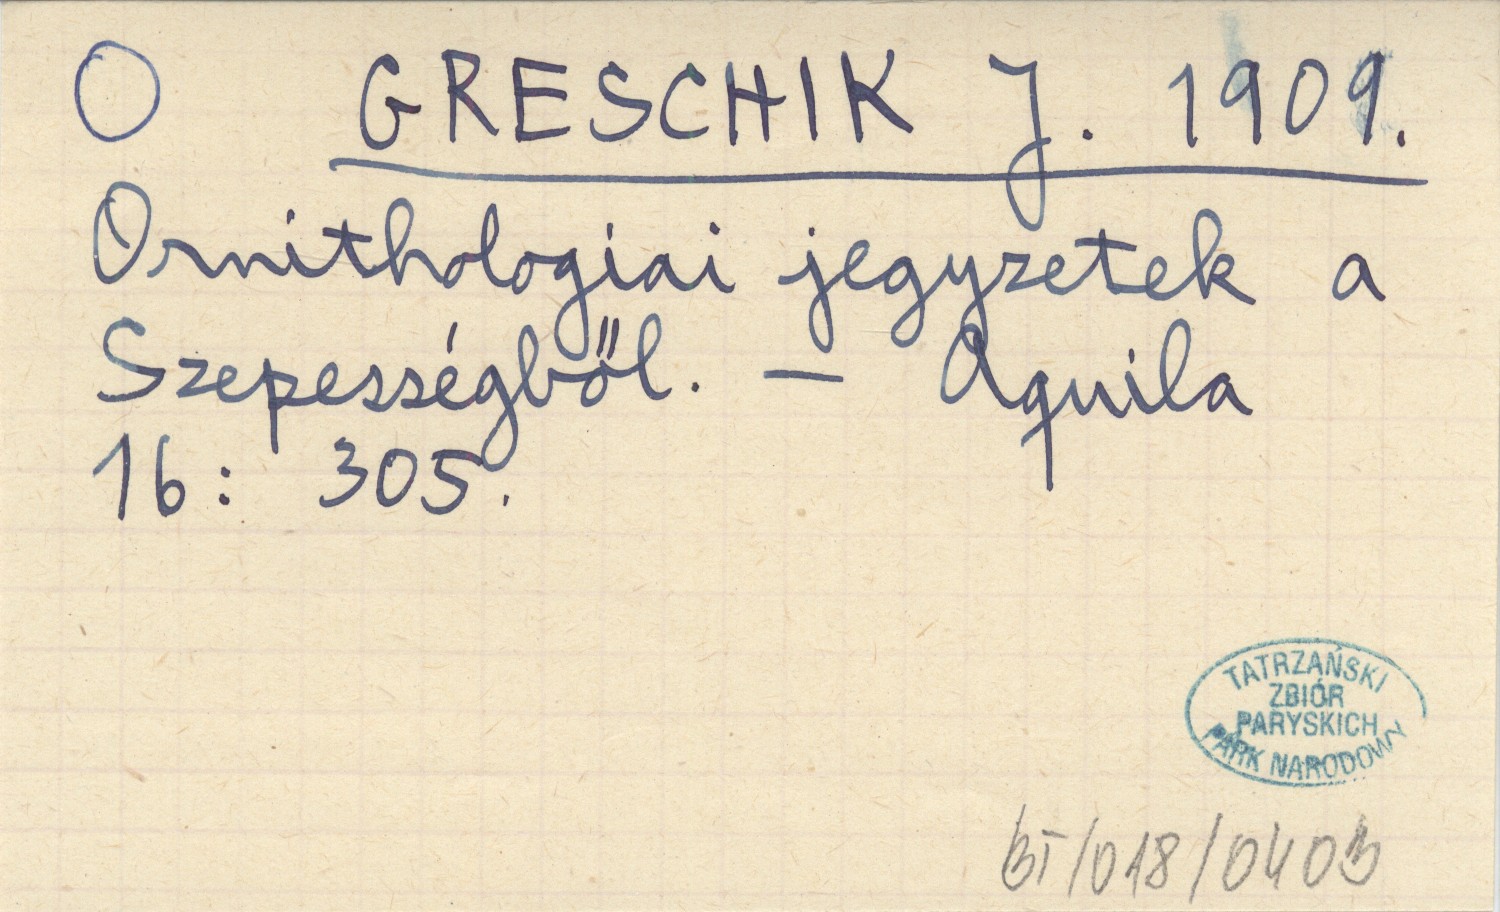 O GRESCHIK J. 1909.
Ornithologiai jegyzetek a
Szepességből. — Aquila
16: 305.
TATRZAŃSKI
ZBIÓR
PARYSKICH
PARK NARODOWY
BT/018/0403